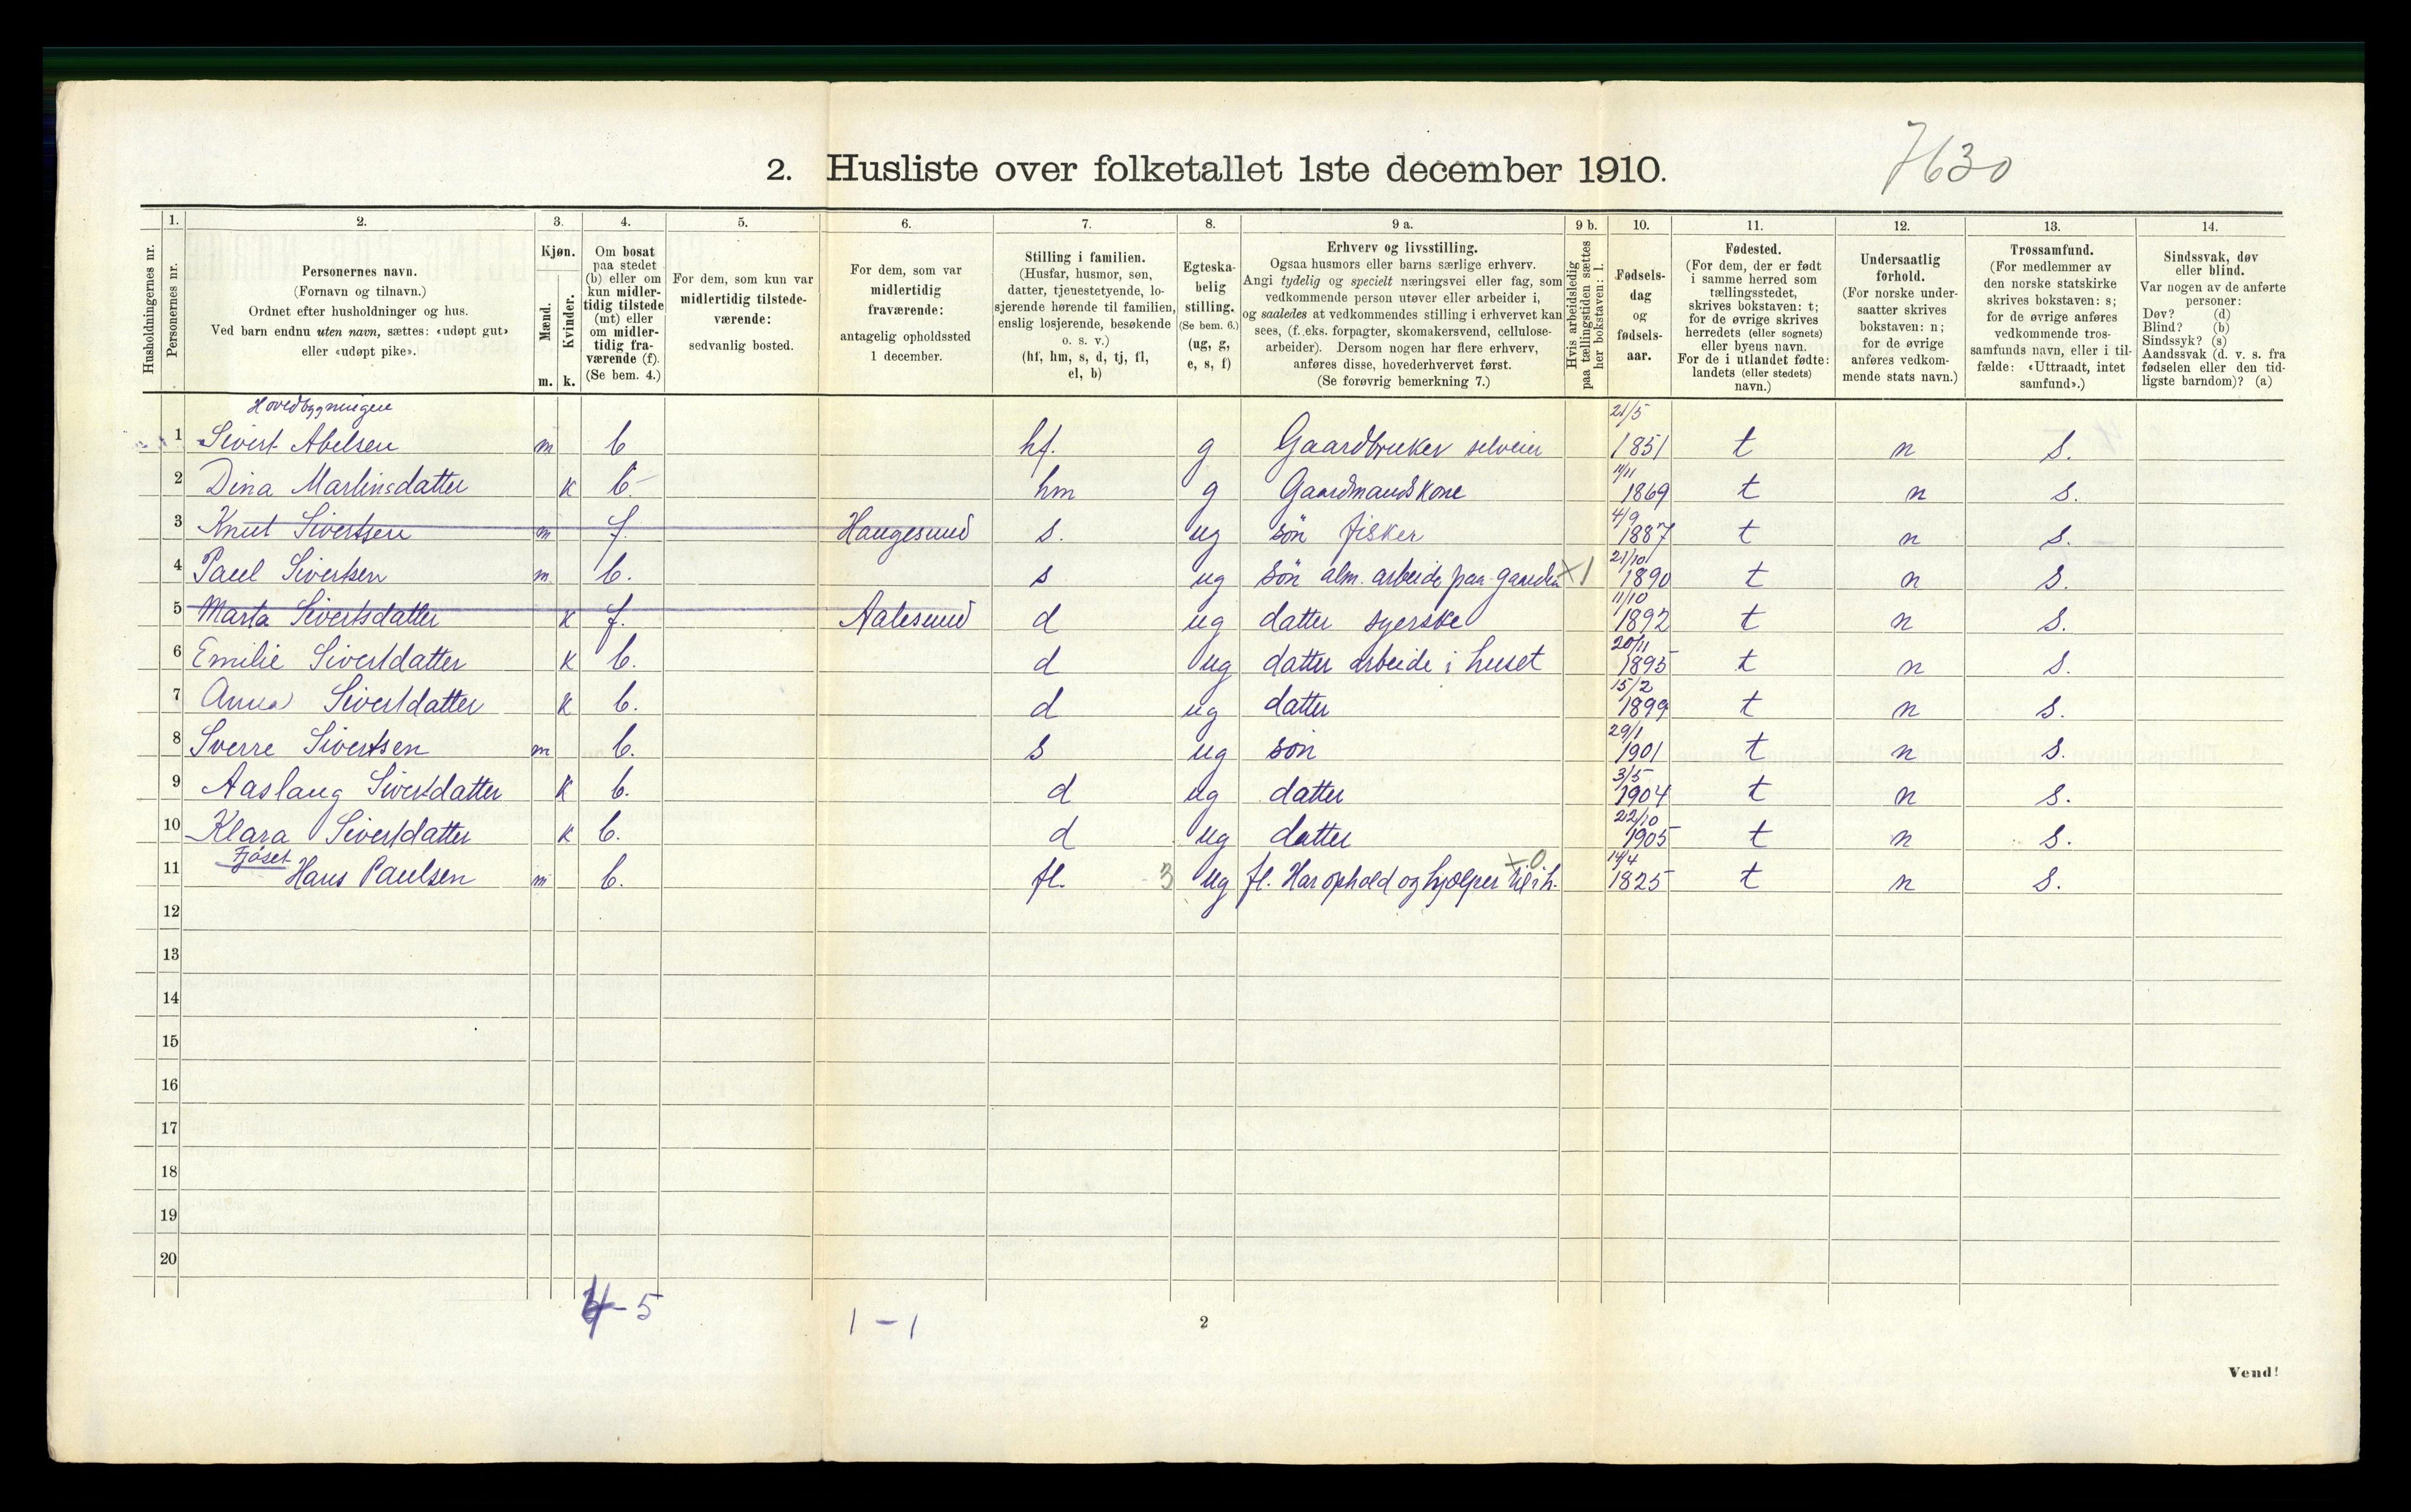 7630
2. Husliste over folketallet 1ste december 1910.
1. 2. 3. 4. 5. 6. 7. 8. 9 a. 9 b. 10. 11. 12. 13. 14.
Husholdningernes nr.
Personernes nr.
Personernes navn.
(Fornavn og tilnavn.)
Ordnet efter husholdninger og hus.
Ved barn endnu uten navn, sættes: «udøpt gut»
eller «udøpt pike».
Kjøn.
Mænd.
Kvinder.
m. k.
Om bosat
paa stedet
(b) eller om
kun midler-
tidig tilstede
(mt) eller
om midler-
tidig fra-
værende (f).
(Se bem. 4.)
For dem, som kun var
midlertidig tilstede-
værende:
sedvanlig bosted.
For dem, som var
midlertidig
fraværende:
antagelig opholdssted
1 december.
Stilling i familien.
(Husfar, husmor, søn,
datter, tjenestetyende, lo-
sjerende hørende til familien,
enslig losjerende, besøkende
o. s. v.)
(hf, hm, s, d, tj, fl,
el, b)
Egteska-
belig
stilling.
(Se bem. 6.)
(ug, g,
e, s, f)
Erhverv og livsstilling.
Ogsaa husmors eller barns særlige erhverv.
Angi tydelig og specielt næringsvei eller fag, som
vedkommende person utøver eller arbeider i,
og saaledes at vedkommendes stilling i erhvervet kan
sees, (f. eks. forpagter, skomakersvend, cellulose-
arbeider). Dersom nogen har flere erhverv,
anføres disse, hovederhvervet først.
(Se forøvrig bemerkning 7.)
Hvis arbeidsledig
paa tællingstiden sættes
her bokstaven: l.
Fødsels-
dag
og
fødsels-
aar.
Fødested.
(For dem, der er født
i samme herred som
tællingsstedet,
skrives bokstaven: t;
for de øvrige skrives
herredets (eller sognets)
eller byens navn.
For de i utlandet fødte:
landets (eller stedets)
navn.)
Undersaatlig
forhold.
(For norske under-
saatter skrives
bokstaven: n;
for de øvrige
anføres vedkom-
mende stats navn.)
Trossamfund.
(For medlemmer av
den norske statskirke
skrives bokstaven: s;
for de øvrige anføres
vedkommende tros-
samfunds navn, eller i til-
fælde: «Uttraadt, intet
samfund».)
Sindssvak, døv
eller blind.
Var nogen av de anførte
personer:
Døv? (d)
Blind? (b)
Sindssyk? (s)
Aandssvak (d. v. s. fra
fødselen eller den tid-
ligste barndom)? (a)
Hovedbygningen
1 Sivert Abelsen m b hf. g Gaardbruker selveier 21/5 1851 t n s.
2 Dina Martinsdatter k b. hm g Gaardmandskone 11/11 1869 t n s.
3 Knut Sivertsen m f. Haugesund s. ug søn fisker 4/9 1887 t n s.
4 Paul Sivertsen m b. s ug søn alm. arbeide paa gaarden X1 21/10 1890 t n s.
5 Marta Sivertsdatter k f. Aalesund d ug datter syerske 11/10 1892 t n s.
6 Emilie Sivertdatter k b. d ug datter arbeide i huset 20/11 1895 t n s.
7 Anna Sivertdatter k b. d ug datter 15/2 1899 t n s.
8 Sverre Sivertsen m b. s ug søn 29/1 1901 t n s.
9 Aaslaug Sivertdatter k b. d ug datter 3/5 1904 t n s.
10 Klara Sivertdatter k b. d ug datter 22/10 1905 t n s.
Fjøset
11 Hans Paulsen m b. fl. 3 ug fl. Har ophold og hjælper til i h. X0 14/4 1825 t n s.
12
13
14
15
16
17
18
19
20
4-5
1-1
2
Vend!